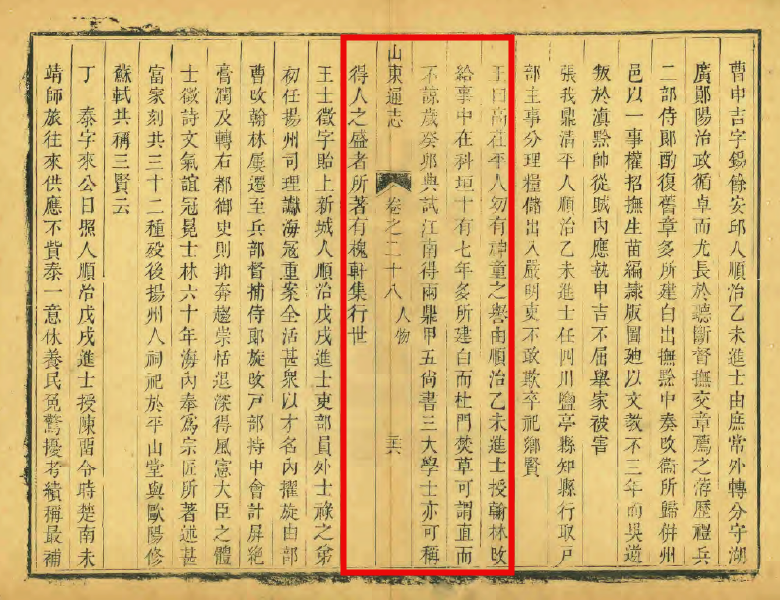 曹申吉字錫餘安邱人順治乙未進士由庶常外轉分守湖
廣鄖陽治政循卓而尤長於聽斷督撫交章薦之洊歷禮兵
二部侍郎酌復舊章多所建白出撫黔中奏改衞所歸併州
邑以一事權招撫生苗編隸版圖廸以文教不三年而吳逆
叛於滇黔帥從賊內應執申吉不屈舉家被害
張我鼎清平人順治乙未進士任四川鹽亭縣知縣行取戶
部主事分理糧儲出入嚴明吏不敢欺卒祀鄉賢
王曰高茌平人幼有神童之譽由順治乙未進士授翰林改
給事中在科垣十有七年多所建白而杜門焚草可謂直而
不諒歲癸卯典試江南得兩鼎甲五尚書三大學士亦可稱
山東通志 卷之二十八 人物 三六
得人之盛者所著有槐軒集行世
王士徵字貽上新城人順治戊戌進士吏部員外士祿之第
初任揚州司理讞海冦重案全活甚衆以才名內擢旋由部
曹改翰林屢遷至兵部督捕侍郎旋改戶部持中會計屏絕
膏潤及轉右都御史則抑奔趨崇恬退深得風憲大臣之體
士徵詩文氣誼冠晃士林六十年海內奉爲宗匠所著述甚
富家刻共三十二種歿後揚州人祠祀於平山堂與歐陽修
蘇軾共稱三賢云
丁 泰字來公日照人順治戊戌進士授陳留令時楚南未
靖師旅往來供應不貲泰一意休養民免驚擾考績稱最補